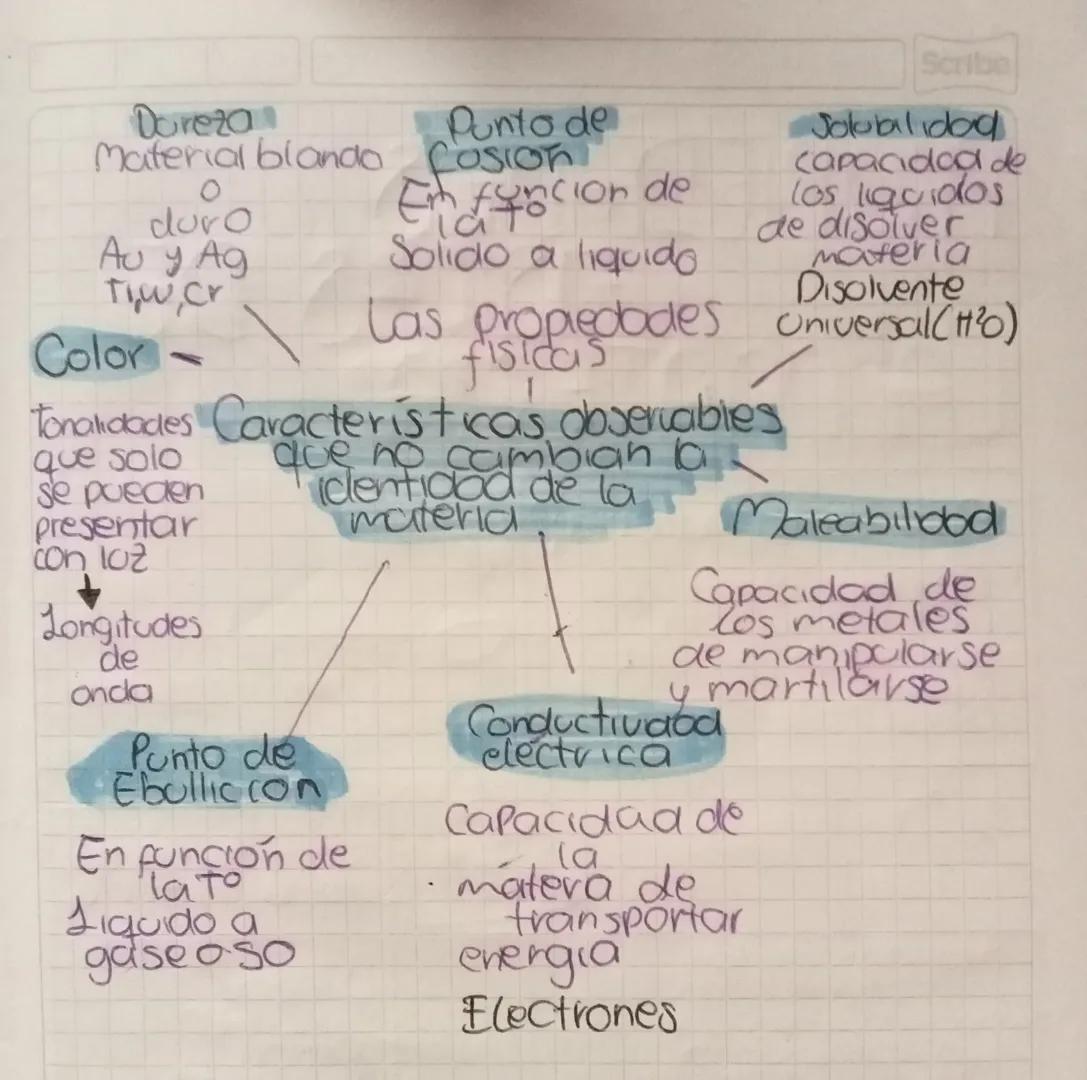 Scribe
Dureza
Material blando
o
duro
Au y Ag
Ti,W,Cr
Punto de
fusión
En funcion de
la T°
Solido a liquido
Solubalidad
capacidad de
los liquidos
de disolver
materia
Disolvente
Universal (H²O)
Las propiedades
fisicas
Color
Tonalidades
que solo
se pueden
presentar
con luz
Longitudes
de
onda
Características observables
que no cambian la
identidad de la
materia
Maleabilidad
Capacidad de
los metales
de manipularse
y martilarse
Punto de
Ebullicion
En función de
la T°
Liquido a
gaseoso
Conductividad
eléctrica
Capacidad de
la
matera de
transportar
energía
Electrones